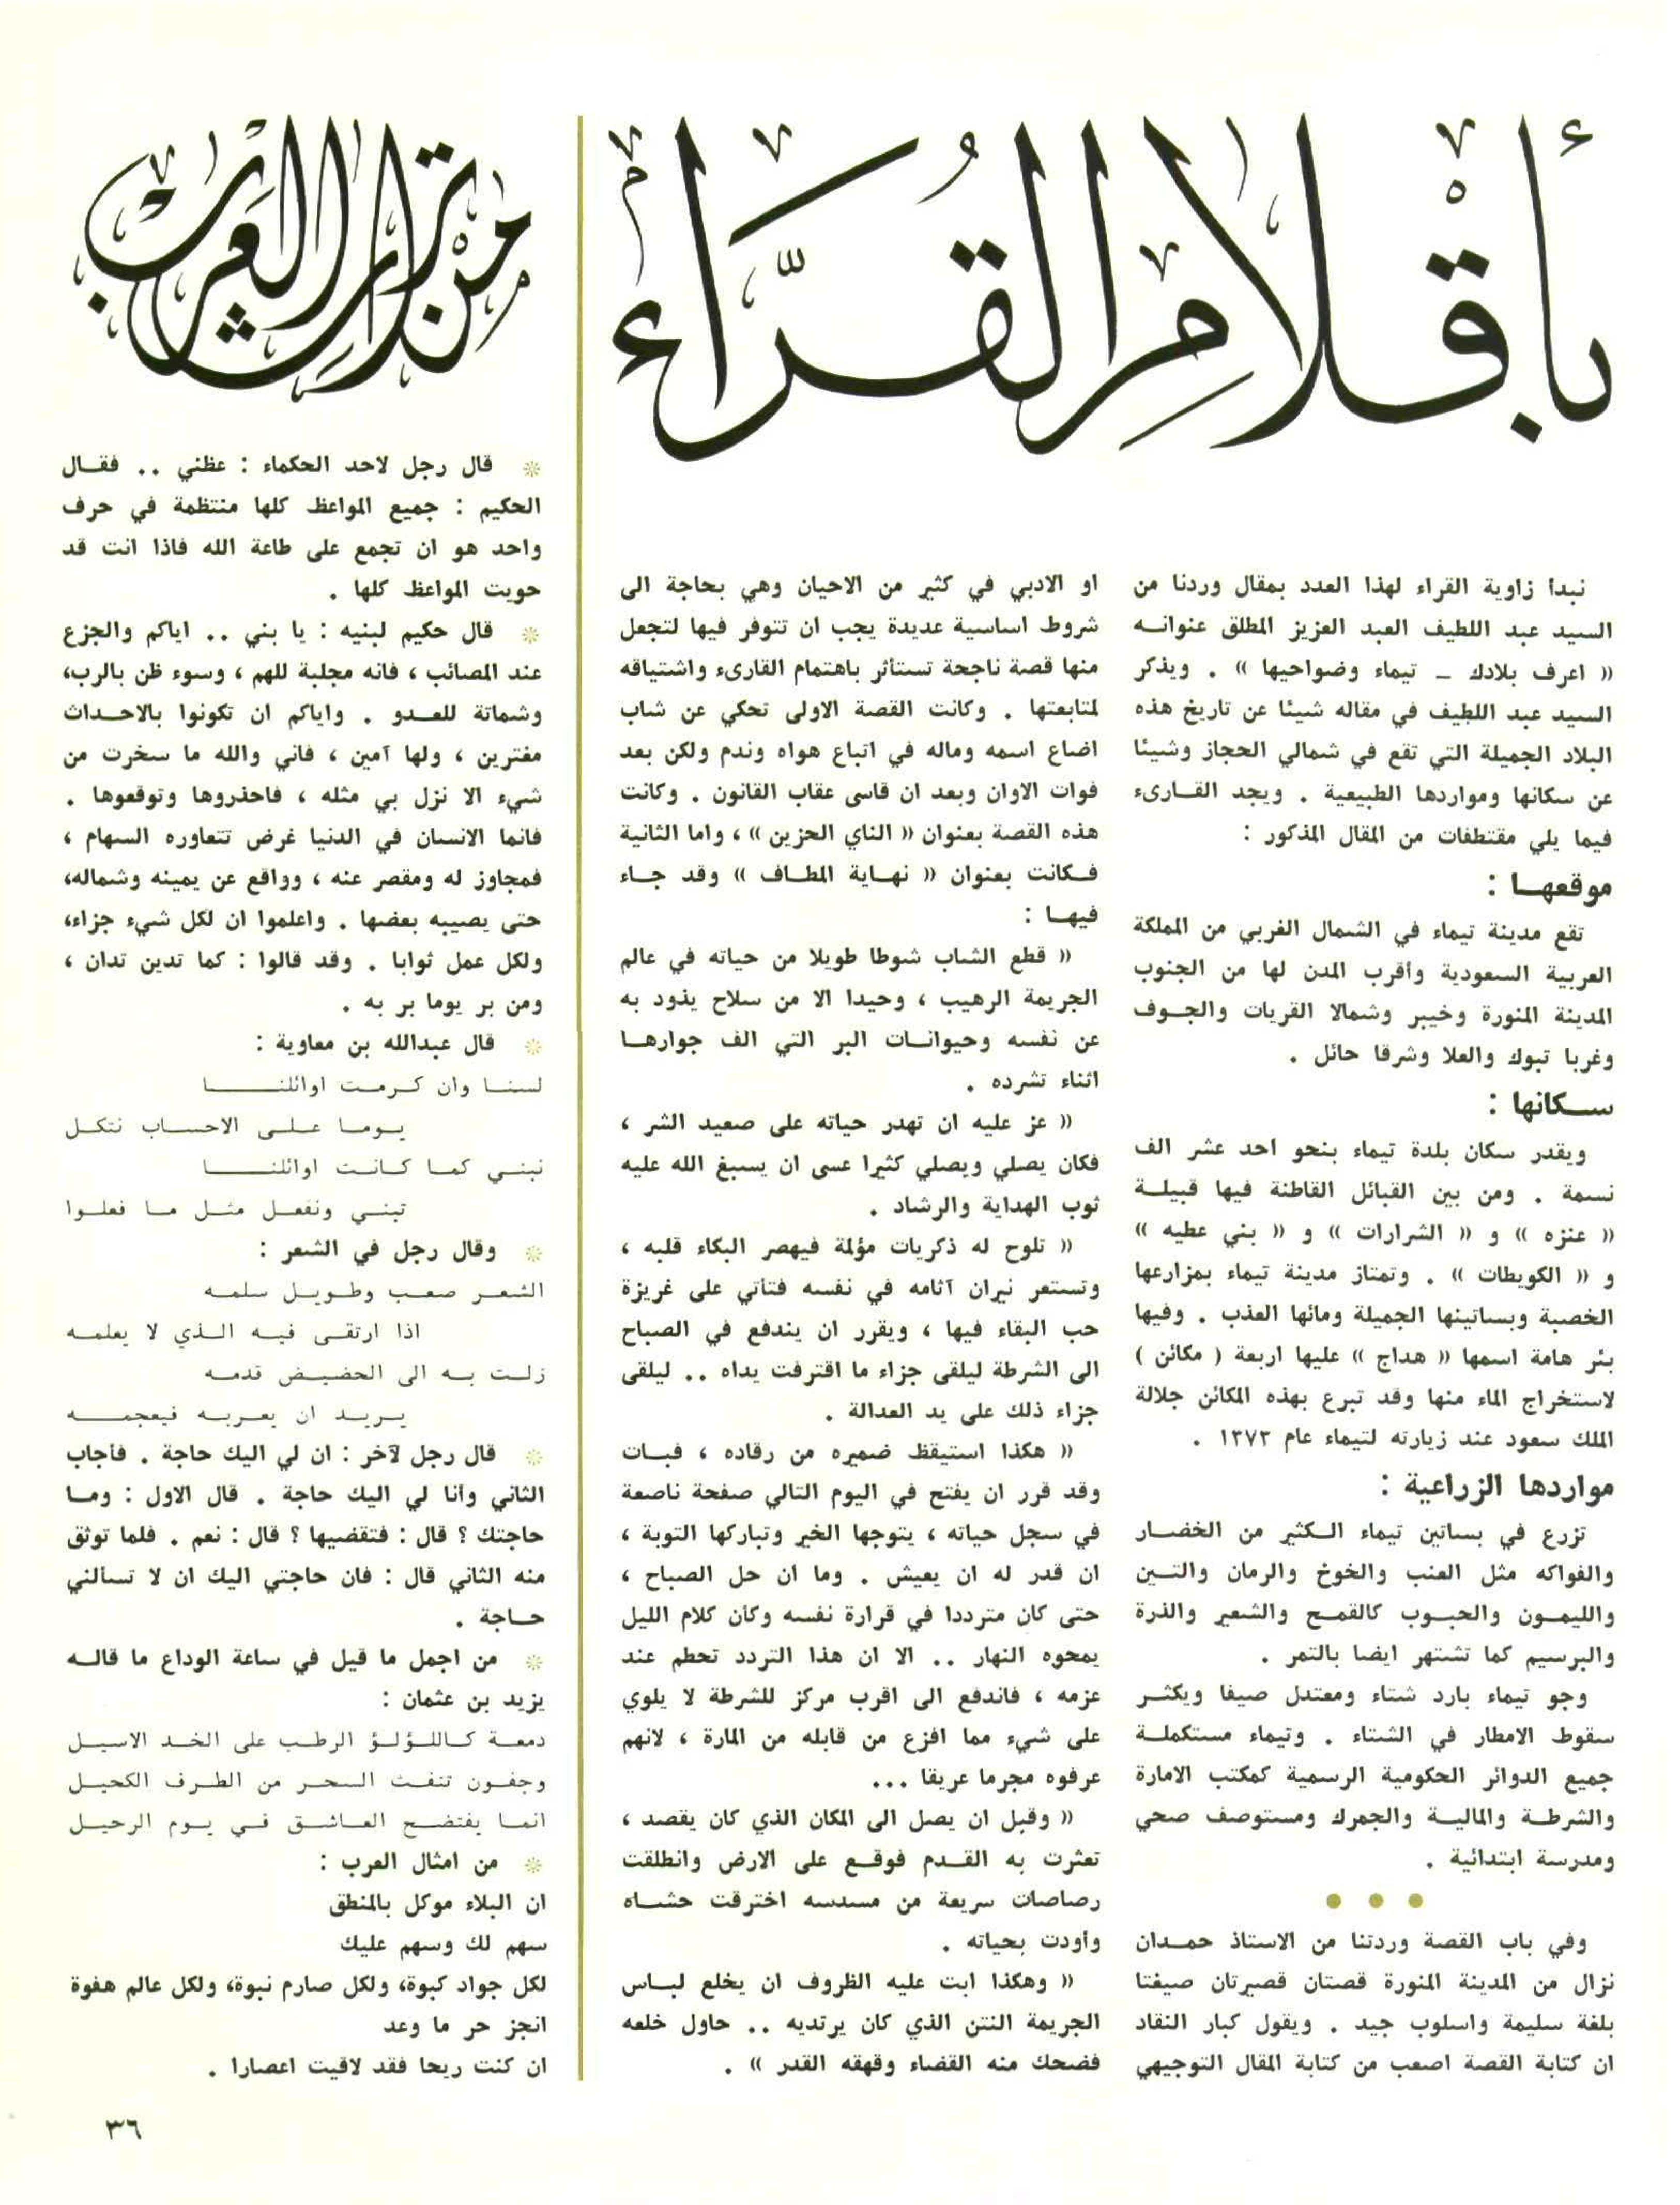 بأقلام القراء
نبدا زاوية القراء لهذا العدد بمقال وردنا من
السيد عبد اللطيف العبد العزيز المطلق عنوانه
« اعرف بلادك – تيماء وضواحيها » . ويذكر
السيد عبد اللطيف في مقاله شيئا عن تاريخ هذه
البلاد الجميلة التي تقع في شمالي الحجاز وشيئا
عن سكانها ومواردها الطبيعية . ويجد القارىء
فيما يلي مقتطفات من المقال المذكور :
موقعها :
تقع مدينة تيماء في الشمال الغربي من المملكة
العربية السعودية وأقرب المدن لها من الجنوب
المدينة المنورة وخيبر وشمالا القريات والجوف
وغربا تبوك والعلا وشرقا حائل .
سكانها :
ويقدر سكان بلدة تيماء بنحو احد عشر الف
نسمة . ومن بين القبائل القاطنة فيها قبيلة
« عنزه » و « الشرارات » و « بني عطيه »
و « الكويطات » . وتمتاز مدينة تيماء بمزارعها
الخصبة وبساتينها الجميلة ومائها العذب . وفيها
بئر هامة اسمها « هداج » عليها اربعة ( مكائن )
لاستخراج الماء منها وقد تبرع بهذه المكائن جلالة
الملك سعود عند زيارته لتيماء عام ١٣٧٣ .
مواردها الزراعية :
تزرع في بساتين تيماء الكثير من الخضار
والفواكه مثل العنب والخوخ والرمان والتين
والليمون والحبوب كالقمح والشعير والذرة
والبرسيم كما تشتهر ايضا بالتمر .
وجو تيماء بارد شتاء ومعتدل صيفا ويكثر
سقوط الامطار في الشتاء . وتيماء مستكملة
جميع الدوائر الحكومية الرسمية كمكتب الامارة
والشرطة والمالية والجمرك ومستوصف صحي
ومدرسة ابتدائية .
وفي باب القصة وردتنا من الاستاذ حمدان
نزال من المدينة المنورة قصتان قصيرتان صيغتا
بلغة سليمة واسلوب جيد . ويقول كبار النقاد
ان كتابة القصة اصعب من كتابة المقال التوجيهي
او الادبي في كثير من الاحيان وهي بحاجة الى
شروط اساسية عديدة يجب ان تتوفر فيها لتجعل
منها قصة ناجحة تستأثر باهتمام القارىء واشتياقه
لمتابعتها . وكانت القصة الاولى تحكي عن شاب
اضاع اسمه وماله في اتباع هواه وندم ولكن بعد
فوات الاوان وبعد ان قاسى عقاب القانون . وكانت
هذه القصة بعنوان « الناي الحزين » ، واما الثانية
فكانت بعنوان « نهاية المطاف » وقد جاء
فيها :
« قطع الشاب شوطا طويلا من حياته في عالم
الجريمة الرهيب ، وحيدا الا من سلاح يذود به
عن نفسه وحيوانات البر التي الف جوارها
اثناء تشرده .
« عز عليه ان تهدر حياته على صعيد الشر ،
فكان يصلي ويصلي كثيرا عسى ان يسبغ الله عليه
ثوب الهداية والرشاد .
« تلوح له ذكريات مؤلمة فيهصر البكاء قلبه ،
وتستعر نيران آثامه في نفسه فتأتي على غريزة
حب البقاء فيها ، ويقرر ان يندفع في الصباح
الى الشرطة ليلقى جزاء ما اقترفت يداه .. ليلقى
جزاء ذلك على يد العدالة .
« هكذا استيقظ ضميره من رقاده ، فبات
وقد قرر ان يفتح في اليوم التالي صفحة ناصعة
في سجل حياته ، يتوجها الخير وتباركها التوبة ،
ان قدر له ان يعيش . وما ان حل الصباح ،
حتى كان مترددا في قرارة نفسه وكأن كلام الليل
يمحوه النهار .. الا ان هذا التردد تحطم عند
عزمه ، فاندفع الى اقرب مركز للشرطة لا يلوي
على شيء مما افزع من قابله من المارة ، لانهم
عرفوه مجرما عريقا ...
« وقبل ان يصل الى المكان الذي كان يقصد ،
تعثرت به القدم فوقع على الارض وانطلقت
رصاصات سريعة من مسدسه اخترقت حشاه
وأودت بحياته .
« وهكذا ابت عليه الظروف ان يخلع لباس
الجريمة النتن الذي كان يرتديه .. حاول خلعه
فضحك منه القضاء وقهقه القدر » .
من تراث العرب
* قال رجل لاحد الحكماء : عظني .. فقال
الحكيم : جميع المواعظ كلها منتظمة في حرف
واحد هو ان تجمع على طاعة الله فاذا انت قد
حويت المواعظ كلها .
* قال حكيم لبنيه : يا بني .. اياكم والجزع
عند المصائب ، فانه مجلبة للهم ، وسوء ظن بالرب،
وشماتة للعدو . واياكم ان تكونوا بالاحداث
مغترين ، ولها آمين ، فاني والله ما سخرت من
شيء الا نزل بي مثله ، فاحذروها وتوقعوها .
فانما الانسان في الدنيا غرض تتعاوره السهام ،
فمجاوز له ومقصر عنه ، وواقع عن يمينه وشماله،
حتى يصيبه بعضها . واعلموا ان لكل شيء جزاء،
ولكل عمل ثوابا . وقد قالوا : كما تدين تدان ،
ومن بر يوما بر به .
* قال عبدالله بن معاوية :
لسنا وان كرمت اوائلنا
يوما على الاحساب نتكل
نبني كما كانت اوائلنا
تبني ونفعل مثل ما فعلوا
* وقال رجل في الشعر :
الشعر صعب وطويل سلمه
اذا ارتقى فيه الذي لا يعلمه
زلت به الى الحضيض قدمه
يريد ان يعربه فيعجمه
* قال رجل لآخر : ان لي اليك حاجة . فأجاب
الثاني وأنا لي اليك حاجة . قال الاول : وما
حاجتك ؟ قال : فتقضيها ؟ قال : نعم . فلما توثق
منه الثاني قال : فان حاجتي اليك ان لا تسألني
حاجة .
* من اجمل ما قيل في ساعة الوداع ما قاله
يزيد بن عثمان :
دمعة كاللؤلؤ الرطب على الخد الاسيل
وجفون تنفث السحر من الطرف الكحيل
انما يفتضح العاشق في يوم الرحيل
* من امثال العرب :
ان البلاء موكل بالمنطق
سهم لك وسهم عليك
لكل جواد كبوة، ولكل صارم نبوة، ولكل عالم هفوة
انجز حر ما وعد
ان كنت ريحا فقد لاقيت اعصارا .
٣٦